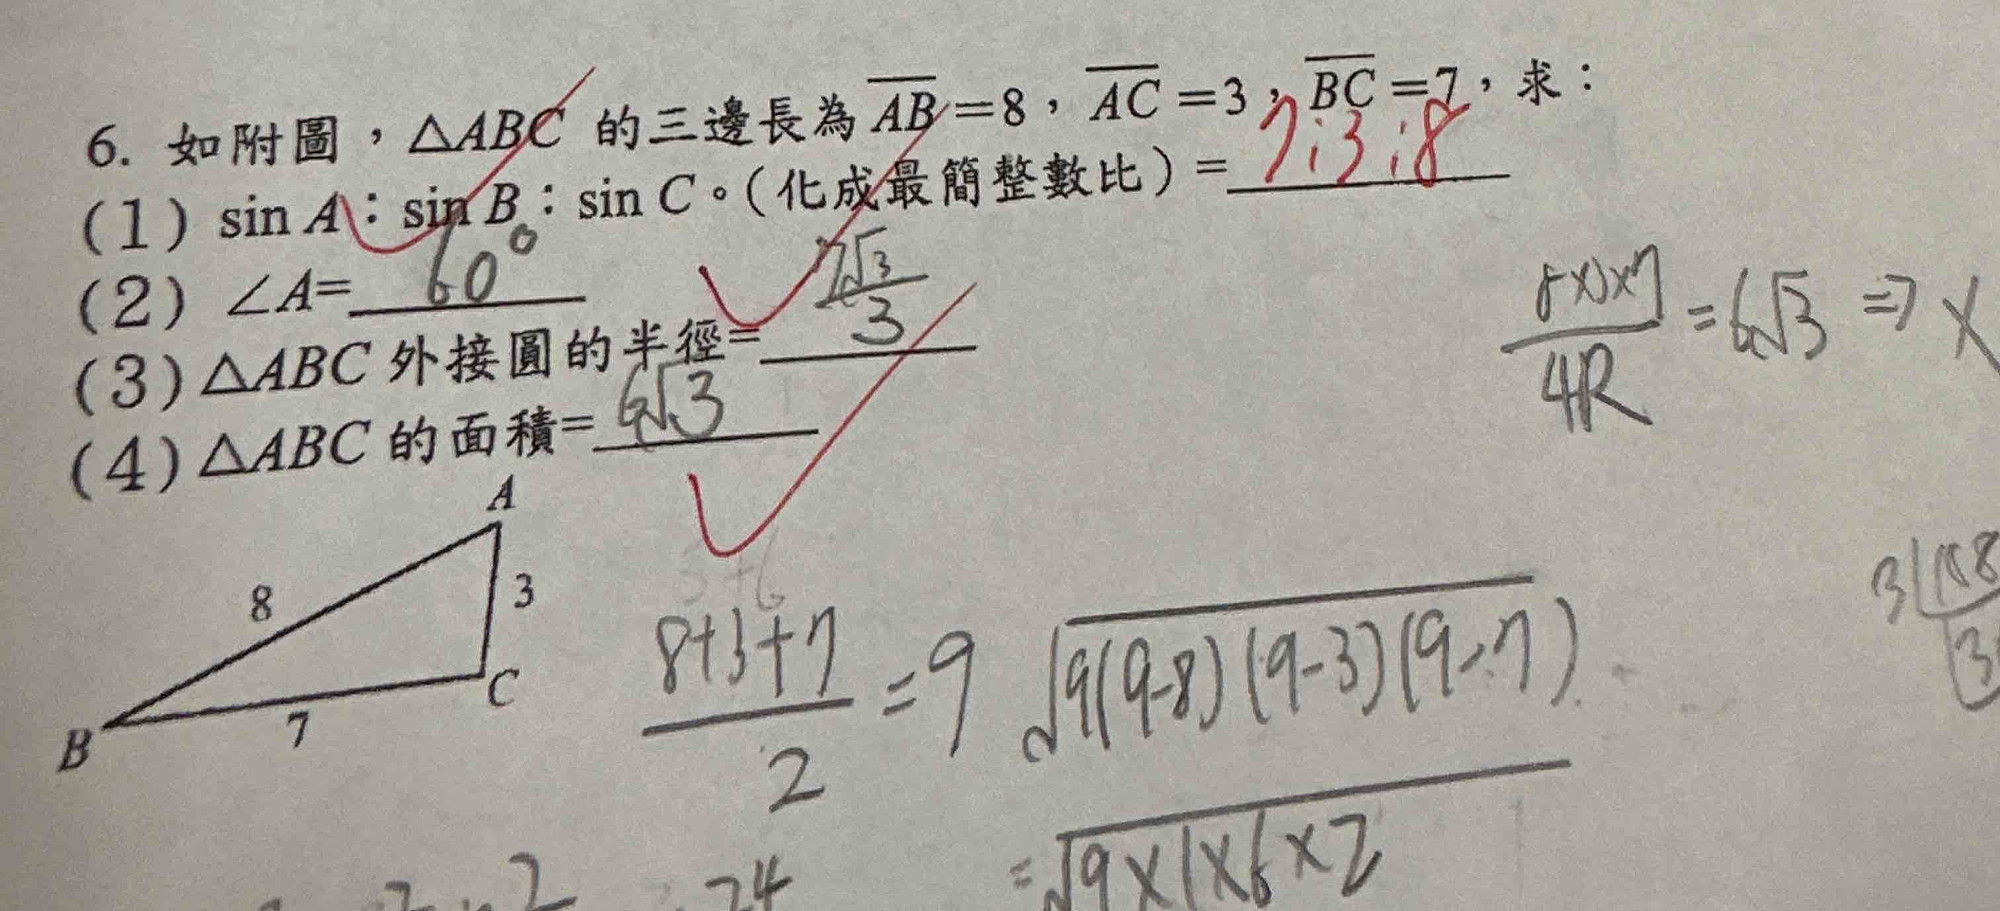 6. 如附圖，△ABC 的三邊長為 AB=8，AC=3，BC=7，求：
(1) sin A：sin B：sin C。(化成最簡整數比) = 7:3:8
(2) ∠A= 60°
(3) △ABC 外接圓的半徑= 7√3/3
(4) △ABC 的面積= 6√3
8×3×7/4R = 6√3 ⇒
A
8
3
B
7
C
8+3+7/2 = 9
√9(9-8)(9-3)(9-7)
=√9×1×6×2
3
24